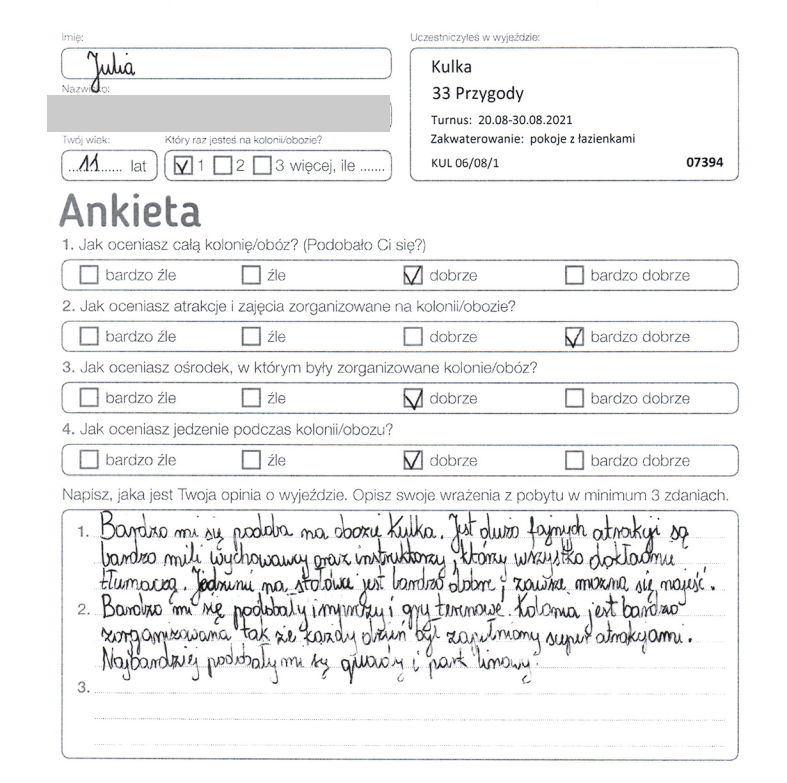 Imię:
Julia
Nazwisko:
Twój wiek: Który raz jesteś na kolonii/obozie?
...11...... lat 1 2 3 więcej, ile .......
Uczestniczyłeś w wyjeździe:
Kulka
33 Przygody
Turnus: 20.08-30.08.2021
Zakwaterowanie: pokoje z łazienkami
KUL 06/08/1 07394
Ankieta
1. Jak oceniasz całą kolonię/obóz? (Podobało Ci się?)
bardzo źle źle dobrze bardzo dobrze
2. Jak oceniasz atrakcje i zajęcia zorganizowane na kolonii/obozie?
bardzo źle źle dobrze bardzo dobrze
3. Jak oceniasz ośrodek, w którym były zorganizowane kolonie/obóz?
bardzo źle źle dobrze bardzo dobrze
4. Jak oceniasz jedzenie podczas kolonii/obozu?
bardzo źle źle dobrze bardzo dobrze
Napisz, jaka jest Twoja opinia o wyjeździe. Opisz swoje wrażenia z pobytu w minimum 3 zdaniach.
1. Bardzo mi się podoba na obozie Kulka. Jest dużo fajnych atrakcji są
bardzo mili wychowawcy oraz instruktorzy, którzy wszystko dokładnie
tłumaczą. Jedzenie na stołówce jest bardzo dobre i zawsze można się najeść.
2. Bardzo mi się podobały imprezy i gry terenowe. Kolonia jest bardzo
zorganizowana tak że każdy dzień był zapełniony super atrakcjami.
Najbardziej podobały mi są quady i park linowy.
3.